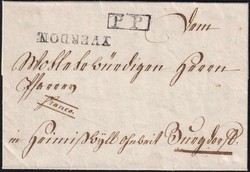 P.P.
YVERDON
Dem
Wohlehrwürdigen Herrn
Pfarrer
franco
in Heimißwyll ohnweit Burgdorf.